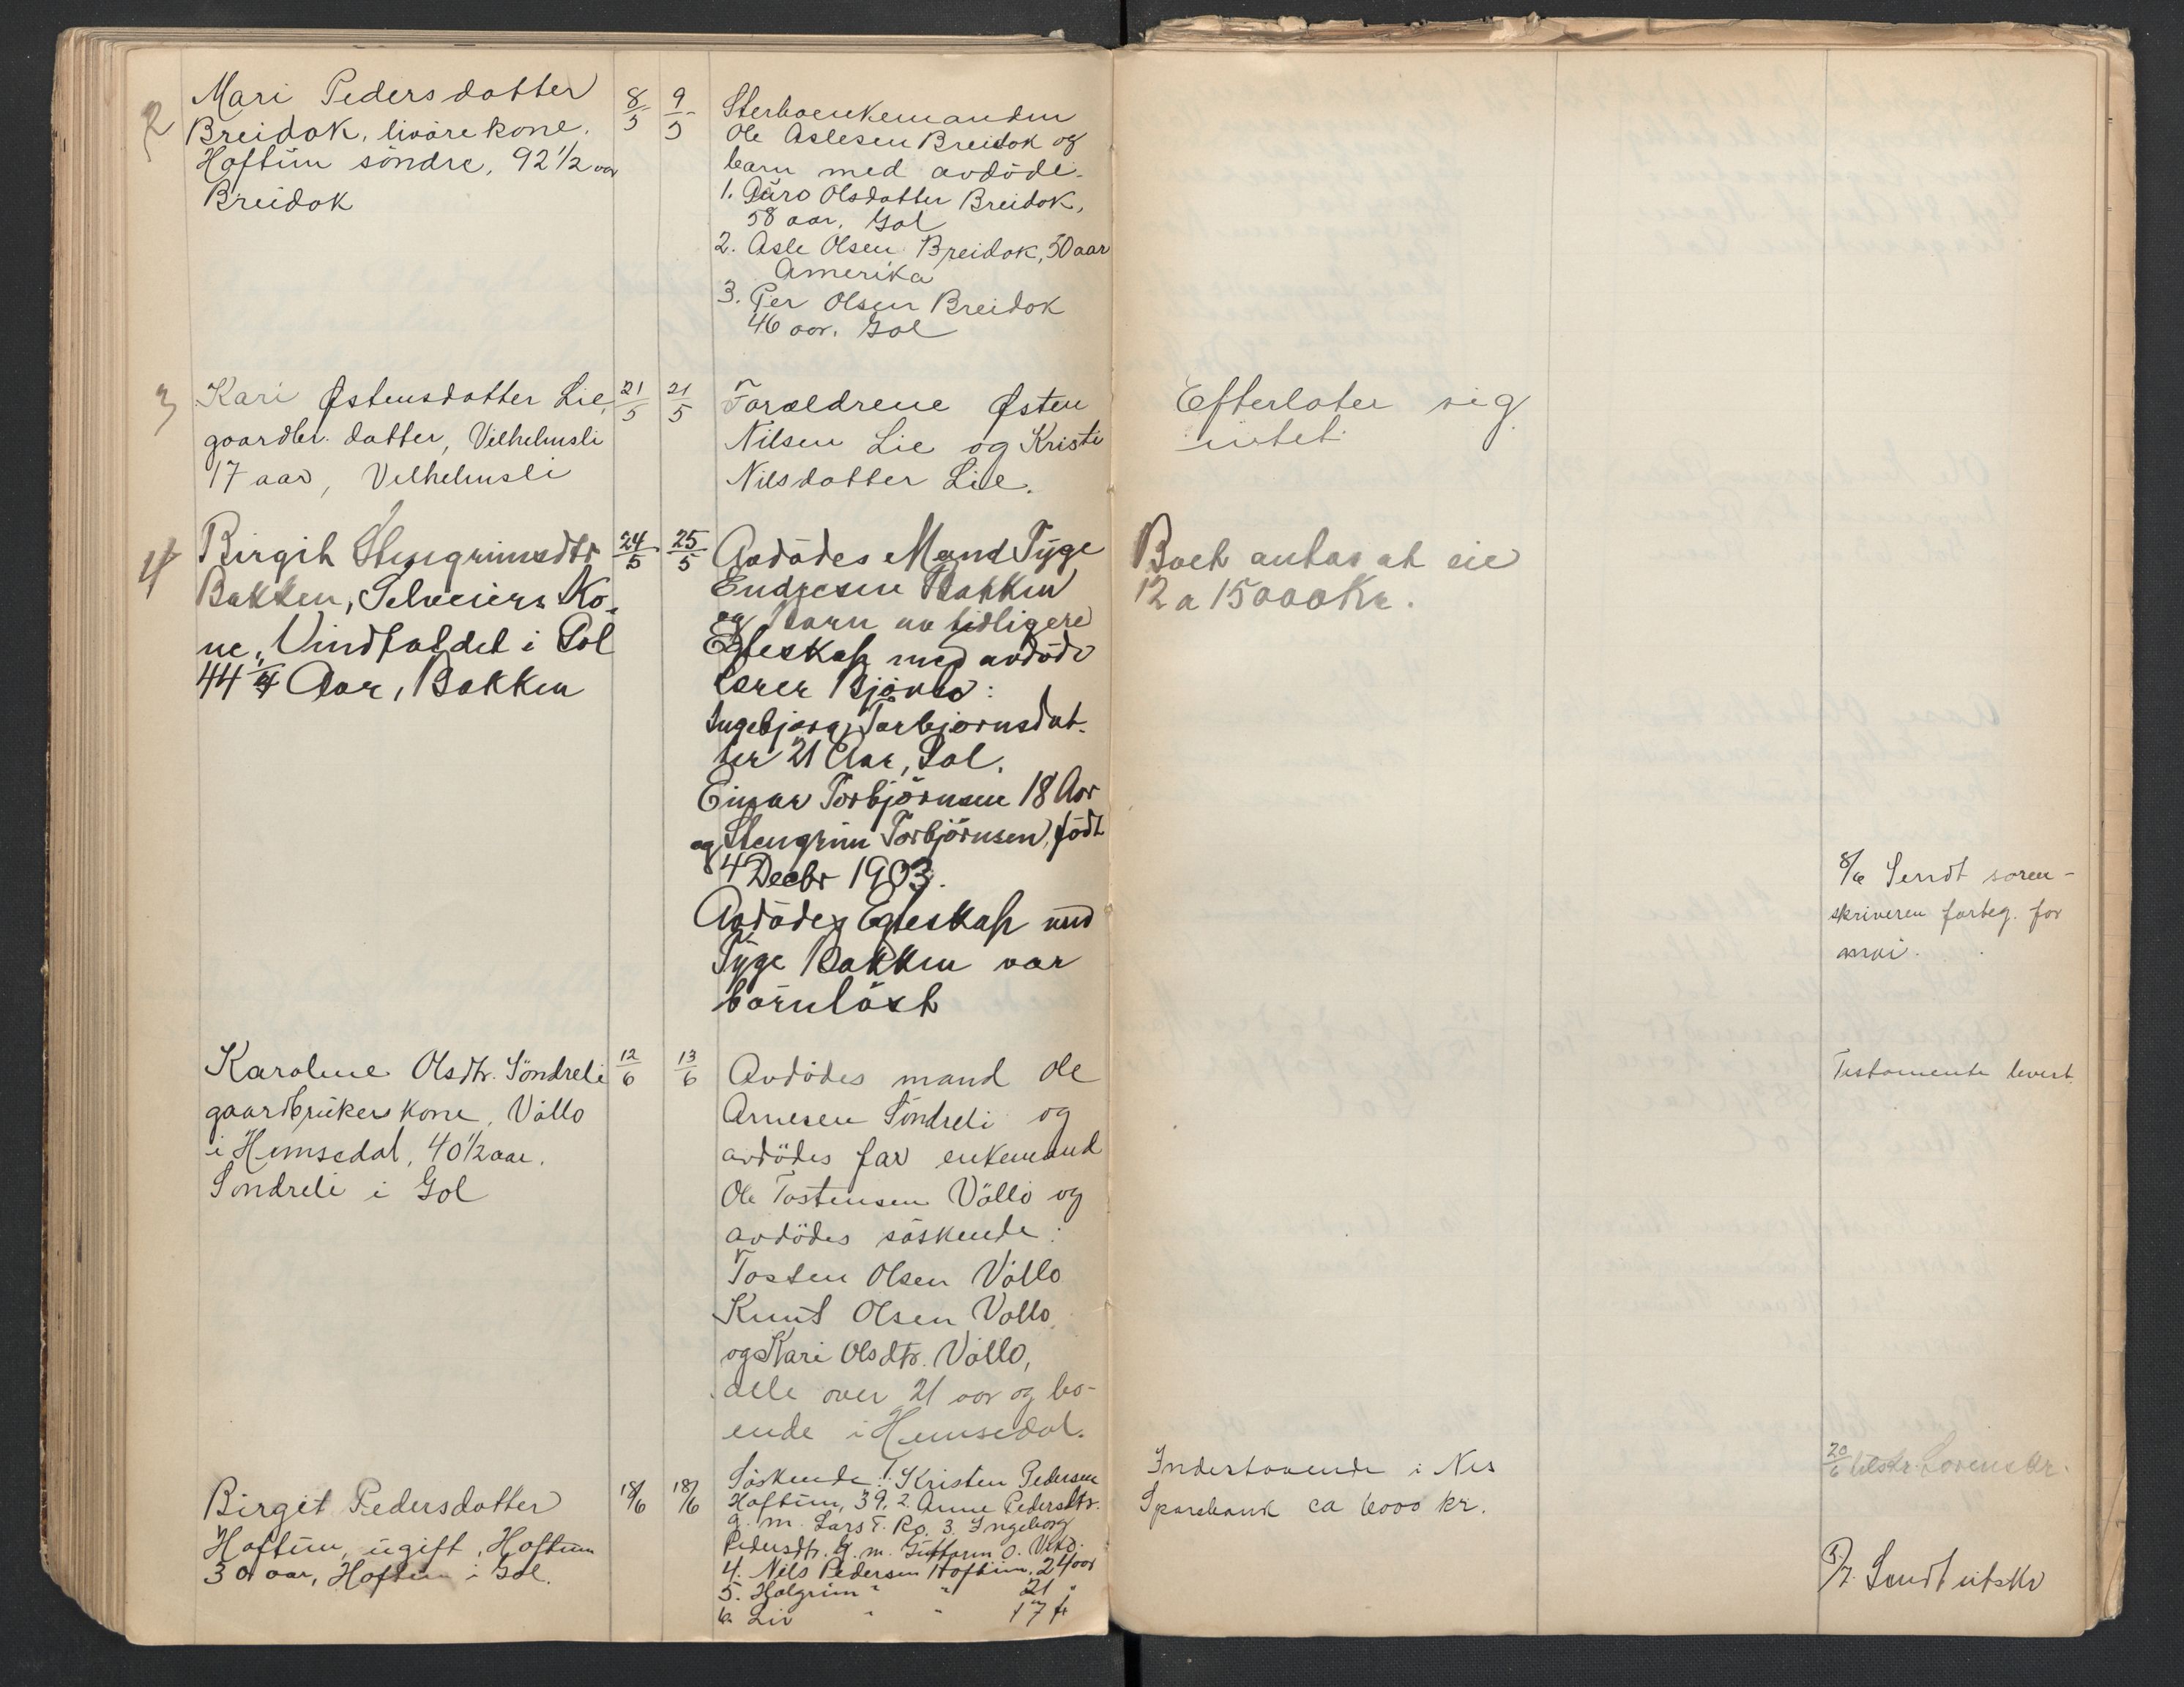 2
Mari Pedersdatter
Breidok, livørekone.
Haftun söndre, 92 1/2 aar
Breidok
8/5
9/5
Sterboenkemanden
Ole Aslesen Breidok og
barn med avdöde.
1. Guro Olsdatter Breidok,
58 aar, Gol
2. Asle Olsen Breidok, 50 aar
Amerika
3. Per Olsen Breidok
46 aar. Gol
3
Kari Østensdatter Lie,
gaardbr. datter, Vilhelmsli
17 aar, Vilhelmsli
21/5
21/5
Forældrene Østen
Nilsen Lie og Kristi
Nilsdatter Lie.
Efterlater sig
intet.
4
Birgit Stengrimsdtr
Bakken, Selveiers Ko-
ne, Vindhaldet i Gol
44 1/4 Aar, Bakken
24/5
25/5
Avdödes Mand Tyge
Endresen Bakken
og Barn av tidligere
Egteskap med avdöde
Lærer Björnsø:
Ingebjørg Torbjørnsdat-
ter 21 Aar, Gol.
Einar Torbjörnsen 18 Aar
og Stengrim Torbjörnsen, födt
4 Decbr 1903.
Avdödes Egteskap med
Tyge Bakken var
börnlöst
Boet antas at eie
12 a 15000 Kr.
8/6 Sendt soren-
skriveren forteg. for
mai.
Karoline Olsdtr. Söndreli
gaardbrukers kone, Völlo
i Hemsedal, 40 1/2 aar.
Söndreli i Gol
12/6
13/6
Avdödes mand Ole
Arnesen Söndreli og
avdödes far enkemand
Ole Tostensen Völlo og
avdödes söskende:
Tosten Olsen Völlo
Knut Olsen Völlo
og Kari Olsdtr. Völlo,
alle over 21 aar og bo-
ende i Hemsedal.
Testamente levert.
Birgit Pedersdatter
Haftun, ugift, Haftun
30 aar, Haftun i Gol.
18/6
18/6
Söskende: 1. Kristen Pedersen
Haftun, 39, 2. Anne Pedersdtr.
g. m. Lars T. Ro. 3. Ingeborg
Pedersdtr. g. m. Guttorm O.
4. Nils Pedersen Haftun, 24 aar
5. Halgrim " " 21 "
6. Liv " " 17 "
Indestaaende i Nes
Sparebank ca 6000 kr.
20/6 utskr. Sorenskr.
5/7. Sendt utskr